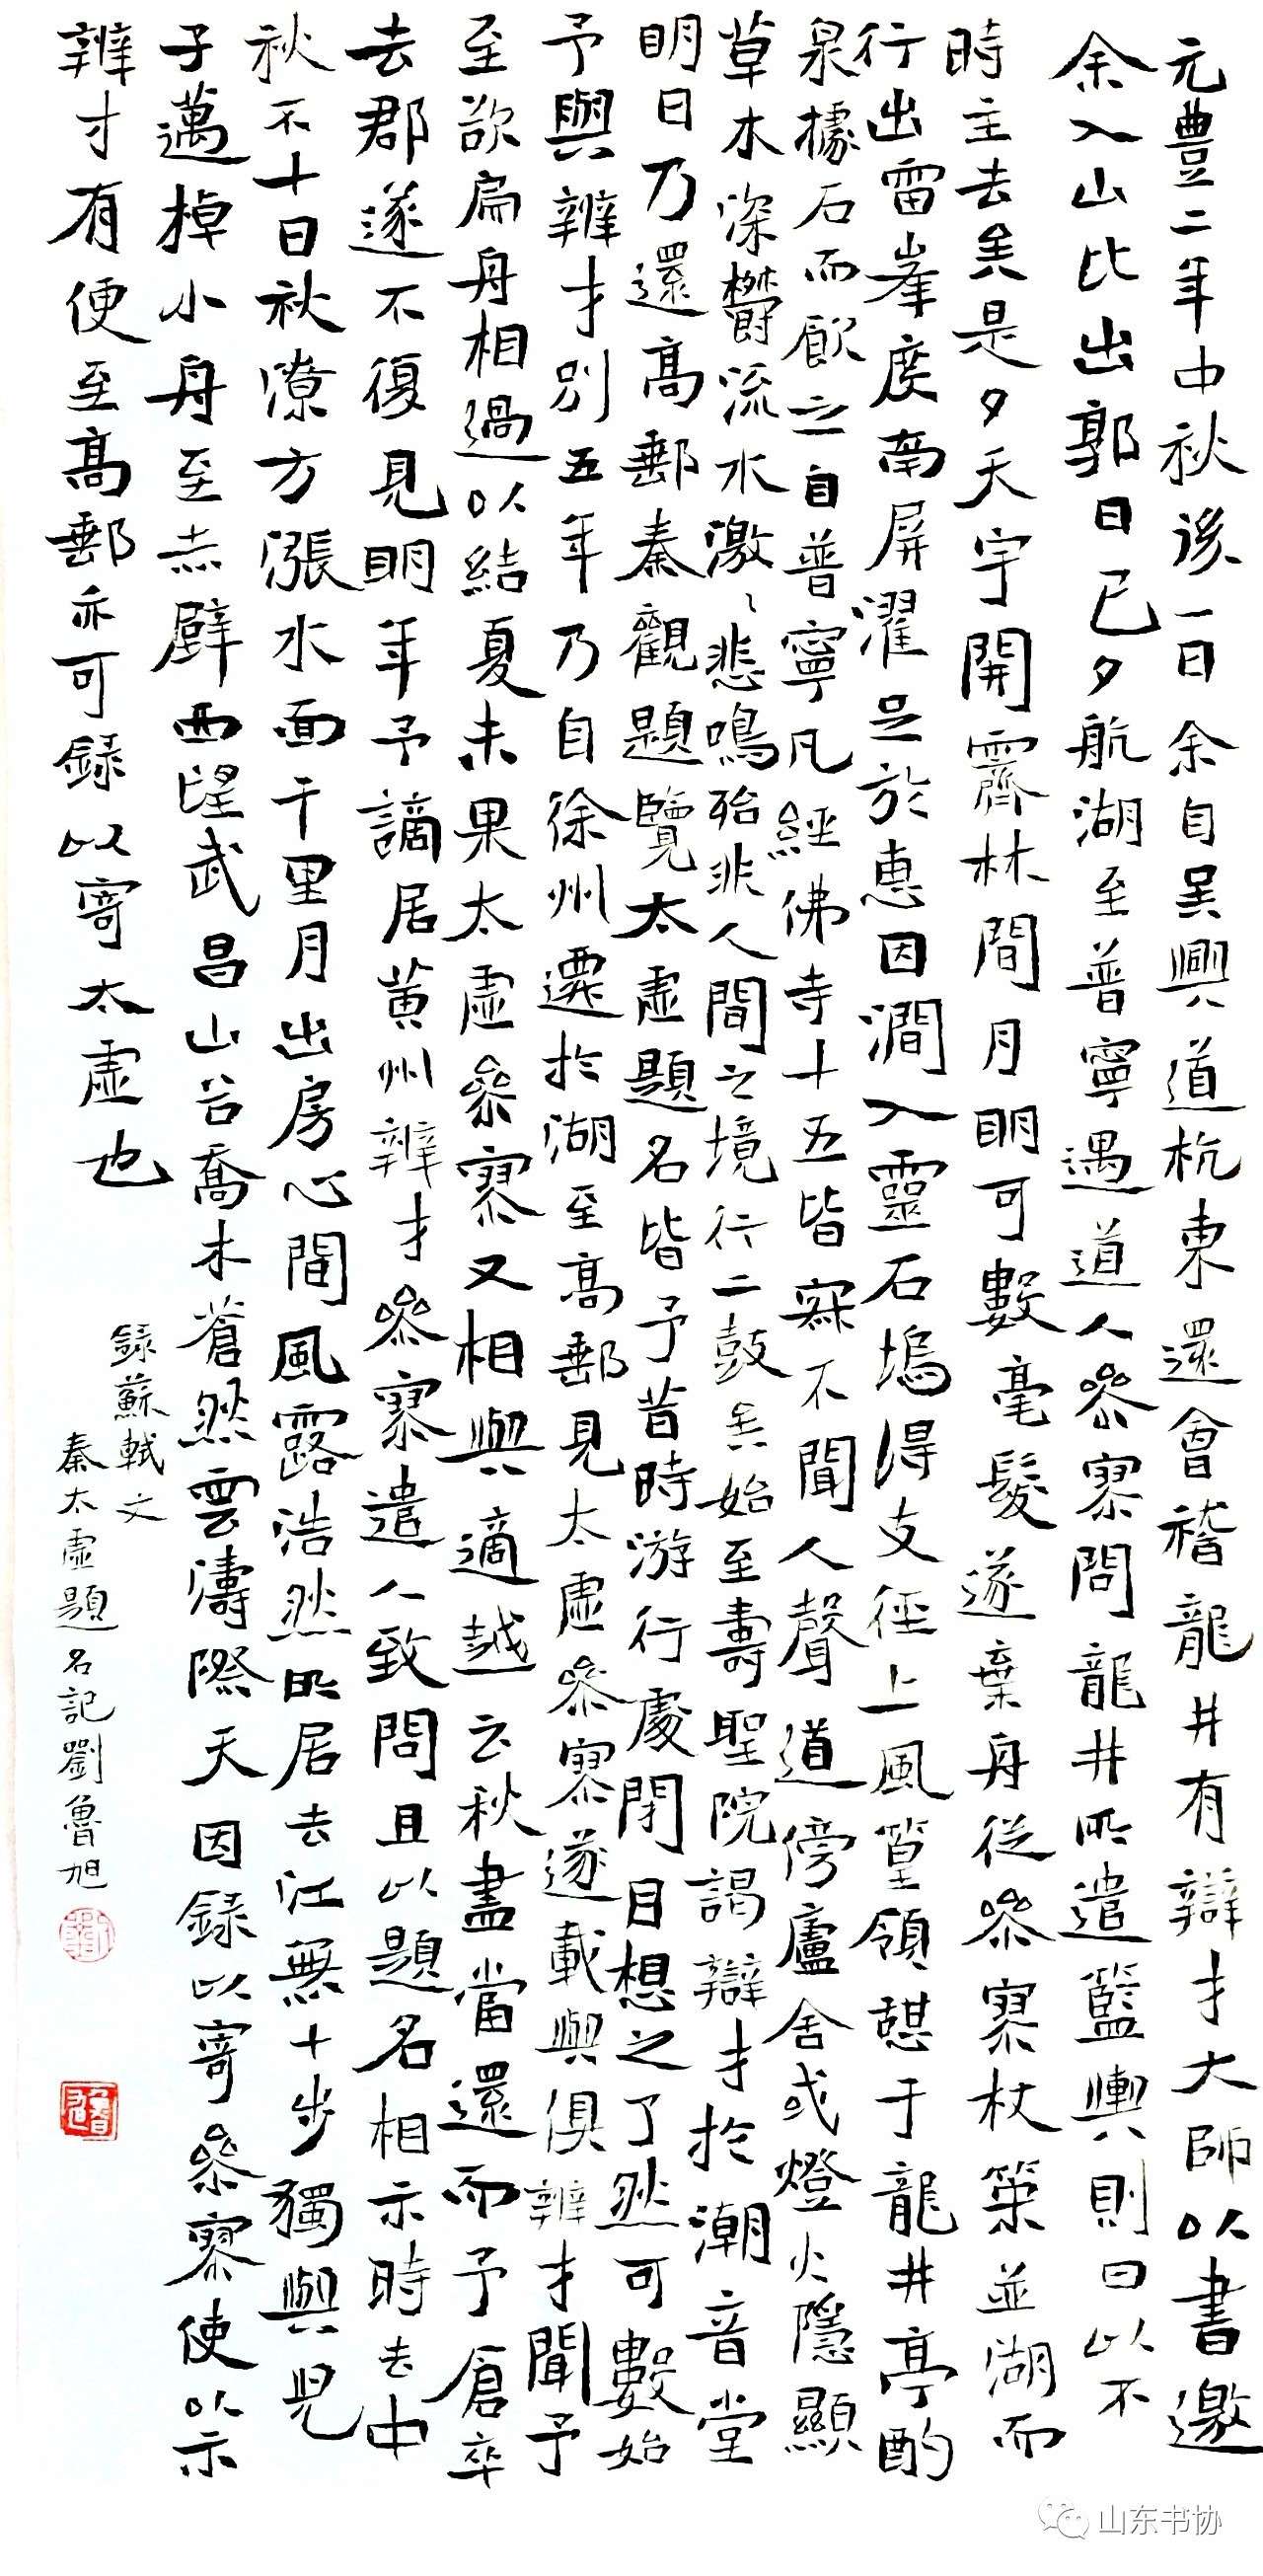 元豐二年中秋後一日余自吴興道杭東還會稽龍井有辯才大師以書邀
余入山比出郭日已夕航湖至普寧遇道人參寥問龍井所遣籃輿則曰以不
時主去矣是夕天宇開霽林間月明可數毫髮遂棄舟從參寥杖策並湖而
行出雷峯度南屏濯足於惠因澗入靈石塢得支徑上風篁嶺憩于龍井亭酌
泉據石而飲之自普寧凡經佛寺十五皆寂不聞人聲道傍廬舍或燈火隱顯
草木深鬱流水激〻悲鳴殆非人間之境行二鼓矣始至壽聖院謁辯才於潮音堂
明日乃還高郵秦觀題覽太虛題名皆予昔時游行處閉目想之了然可數始
予與辨才别五年乃自徐州遷於湖至高郵見太虛參寥遂載與俱辨才聞予
至欲扁舟相過以結夏未果太虛參寥又相與適越云秋盡當還而予倉卒
去郡遂不復見明年予謫居黄州辨才參寥遣人致問且以題名相示時去中
秋不十日秋潦方漲水面千里月出房心間風露浩然所居去江無十步獨與兒
子邁棹小舟至赤壁西望武昌山谷喬木蒼然雲濤際天因録以寄參寥使以示
辨才有便至高郵亦可録以寄太虛也
録蘇軾文
秦太虛題名記劉魯旭
山东书协